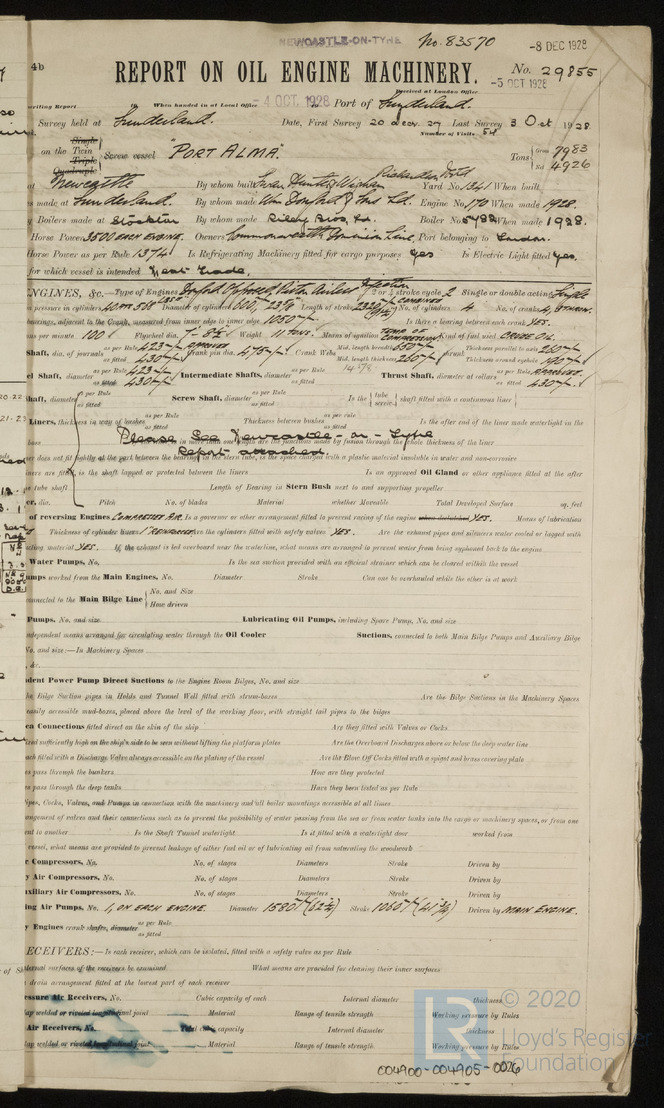 NEWCASTLE-ON-TYNE No. 83570 -8 DEC 1928
4b
REPORT ON OIL ENGINE MACHINERY. No. 29855
Received at London Office -5 OCT 1928
writing Report When handed in at Local Office -4 OCT. 1928 Port of Sunderland.
Survey held at Sunderland. Date, First Survey 20 Last Survey 3 Oct 1928
Number of Visits 54
on the Single Twin Triple Quadruple Screw vessel "PORT ALMA." Tons Gross 7983 Net 4926
at Newcastle By whom built Swan Hunter & Wigham Richardson Yard No. 1341 When built
s made at Sunderland. By whom made Wm Doxford & Sons Ld. Engine No. 170 When made 1928.
y Boilers made at Stockton By whom made Riley Bros. Ld. Boiler No. 5798 When made 1928.
Horse Power 3500 EACH ENGINE. Owners Commonwealth Dominion Line. Port belonging to London.
Horse Power as per Rule 1374 Is Refrigerating Machinery fitted for cargo purposes yes Is Electric Light fitted yes.
for which vessel is intended
ENGINES, &c.—Type of Engines Doxford Opposed Piston Airless Injection 2 or 4 stroke cycle 2 Single or double acting Single
n pressure in cylinders Diameter of cylinders 600 23 5/8" Length of stroke 2320 COMBINED No. of cylinders 4 No. of cranks 4,
bearings, adjacent to the Crank, measured from inner edge to inner edge 1050 m/m. Is there a bearing between each crank YES.
ns per minute 100 Flywheel dia. 7'-8 1/2" Weight 11 TONS. Means of ignition COMPRESSION Kind of fuel used CRUDE OIL.
Shaft, dia. of journals as per Rule 423 m/m APPROVED as fitted 430 m/m Crank pin dia. 475 m/m Crank Webs Mid. length breadth 550 m/m Mid. length thickness 260 m/m Thickness parallel to axis 260 m/m Thickness around eyehole 190 m/m
el Shaft, diameter as per Rule 423 m/m as fitted 430 m/m Intermediate Shafts, diameter as per Rule as fitted Thrust Shaft, diameter at collars as per Rule APPROVED as fitted 430 m/m.
haft, diameter as per Rule as fitted Screw Shaft, diameter as per Rule as fitted Is the { tube screw } shaft fitted with a continuous liner {
Liners, thickness in way of bushes as per Rule as fitted Thickness between bushes as per rule as fitted Is the after end of the liner made watertight in the
Please See Newcastle-on-Tyne
Report attached.
in more than one length are the junctions made by fusion through the whole thickness of the liner
er does not fit tightly at the part between the bearings in the stern tube, is the space charged with a plastic material insoluble in water and non-corrosive
ners are fitted, is the shaft lapped or protected between the liners Is an approved Oil Gland or other appliance fitted at the after
he tube shaft Length of Bearing in Stern Bush next to and supporting propeller
er, dia. Pitch No. of blades Material whether Moveable Total Developed Surface sq. feet
of reversing Engines COMPRESSED AIR. Is a governor or other arrangement fitted to prevent racing of the engine when declutched YES. Means of lubrication
Thickness of cylinder liners Are the cylinders fitted with safety valves YES. Are the exhaust pipes and silencers water cooled or lagged with
ucting material YES. If the exhaust is led overboard near the waterline, what means are arranged to prevent water from being syphoned back to the engine
Water Pumps, No. Is the sea suction provided with an efficient strainer which can be cleared within the vessel
umps worked from the Main Engines, No. Diameter Stroke Can one be overhauled while the other is at work
nnected to the Main Bilge Line { No. and Size How driven
Pumps, No. and size Lubricating Oil Pumps, including Spare Pump, No. and size
ndependent means arranged for circulating water through the Oil Cooler Suctions, connected to both Main Bilge Pumps and Auxiliary Bilge
No. and size:—In Machinery Spaces
, &c.
dent Power Pump Direct Suctions to the Engine Room Bilges, No. and size
he Bilge Suction pipes in Holds and Tunnel Well fitted with strum-boxes Are the Bilge Suctions in the Machinery Spaces
easily accessible mud-boxes, placed above the level of the working floor, with straight tail pipes to the bilges
ea Connections fitted direct on the skin of the ship Are they fitted with Valves or Cocks
ixed sufficiently high on the ship's side to be seen without lifting the platform plates Are the Overboard Discharges above or below the deep water line
ach fitted with a Discharge Valve always accessible on the plating of the vessel Are the Blow Off Cocks fitted with a spigot and brass covering plate
es pass through the bunkers How are they protected
es pass through the deep tanks Have they been tested as per Rule
ipes, Cocks, Valves, and Pumps in connection with the machinery and all boiler mountings accessible at all times
angement of valves and their connections such as to prevent the possibility of water passing from the sea or from water tanks into the cargo or machinery spaces, or from one
ent to another Is the Shaft Tunnel watertight Is it fitted with a watertight door worked from
vessel, what means are provided to prevent leakage of either fuel oil or of lubricating oil from saturating the woodwork
r Compressors, No. No. of stages Diameters Stroke Driven by
y Air Compressors, No. No. of stages Diameters Stroke Driven by
uxiliary Air Compressors, No. No. of stages Diameters Stroke Driven by
ing Air Pumps, No. 1, ON EACH ENGINE. Diameter 1580 m/m (62 1/4) Stroke 1060 m/m (41 3/4) Driven by MAIN ENGINE.
y Engines crank shafts, diameter as per Rule as fitted
ECEIVERS:—Is each receiver, which can be isolated, fitted with a safety valve as per Rule
nternal surfaces of the receivers be examined What means are provided for cleaning their inner surfaces
a drain arrangement fitted at the lowest part of each receiver
ressure Air Receivers, No. Cubic capacity of each Internal diameter thickness
ap welded or riveted longitudinal joint Material Range of tensile strength Working pressure by Rules
Air Receivers, No. Total cubic capacity Internal diameter thickness
ap welded or riveted longitudinal joint Material Range of tensile strength Working pressure by Rules
LR © 2020 Lloyd's Register Foundation
004900-004905-0026